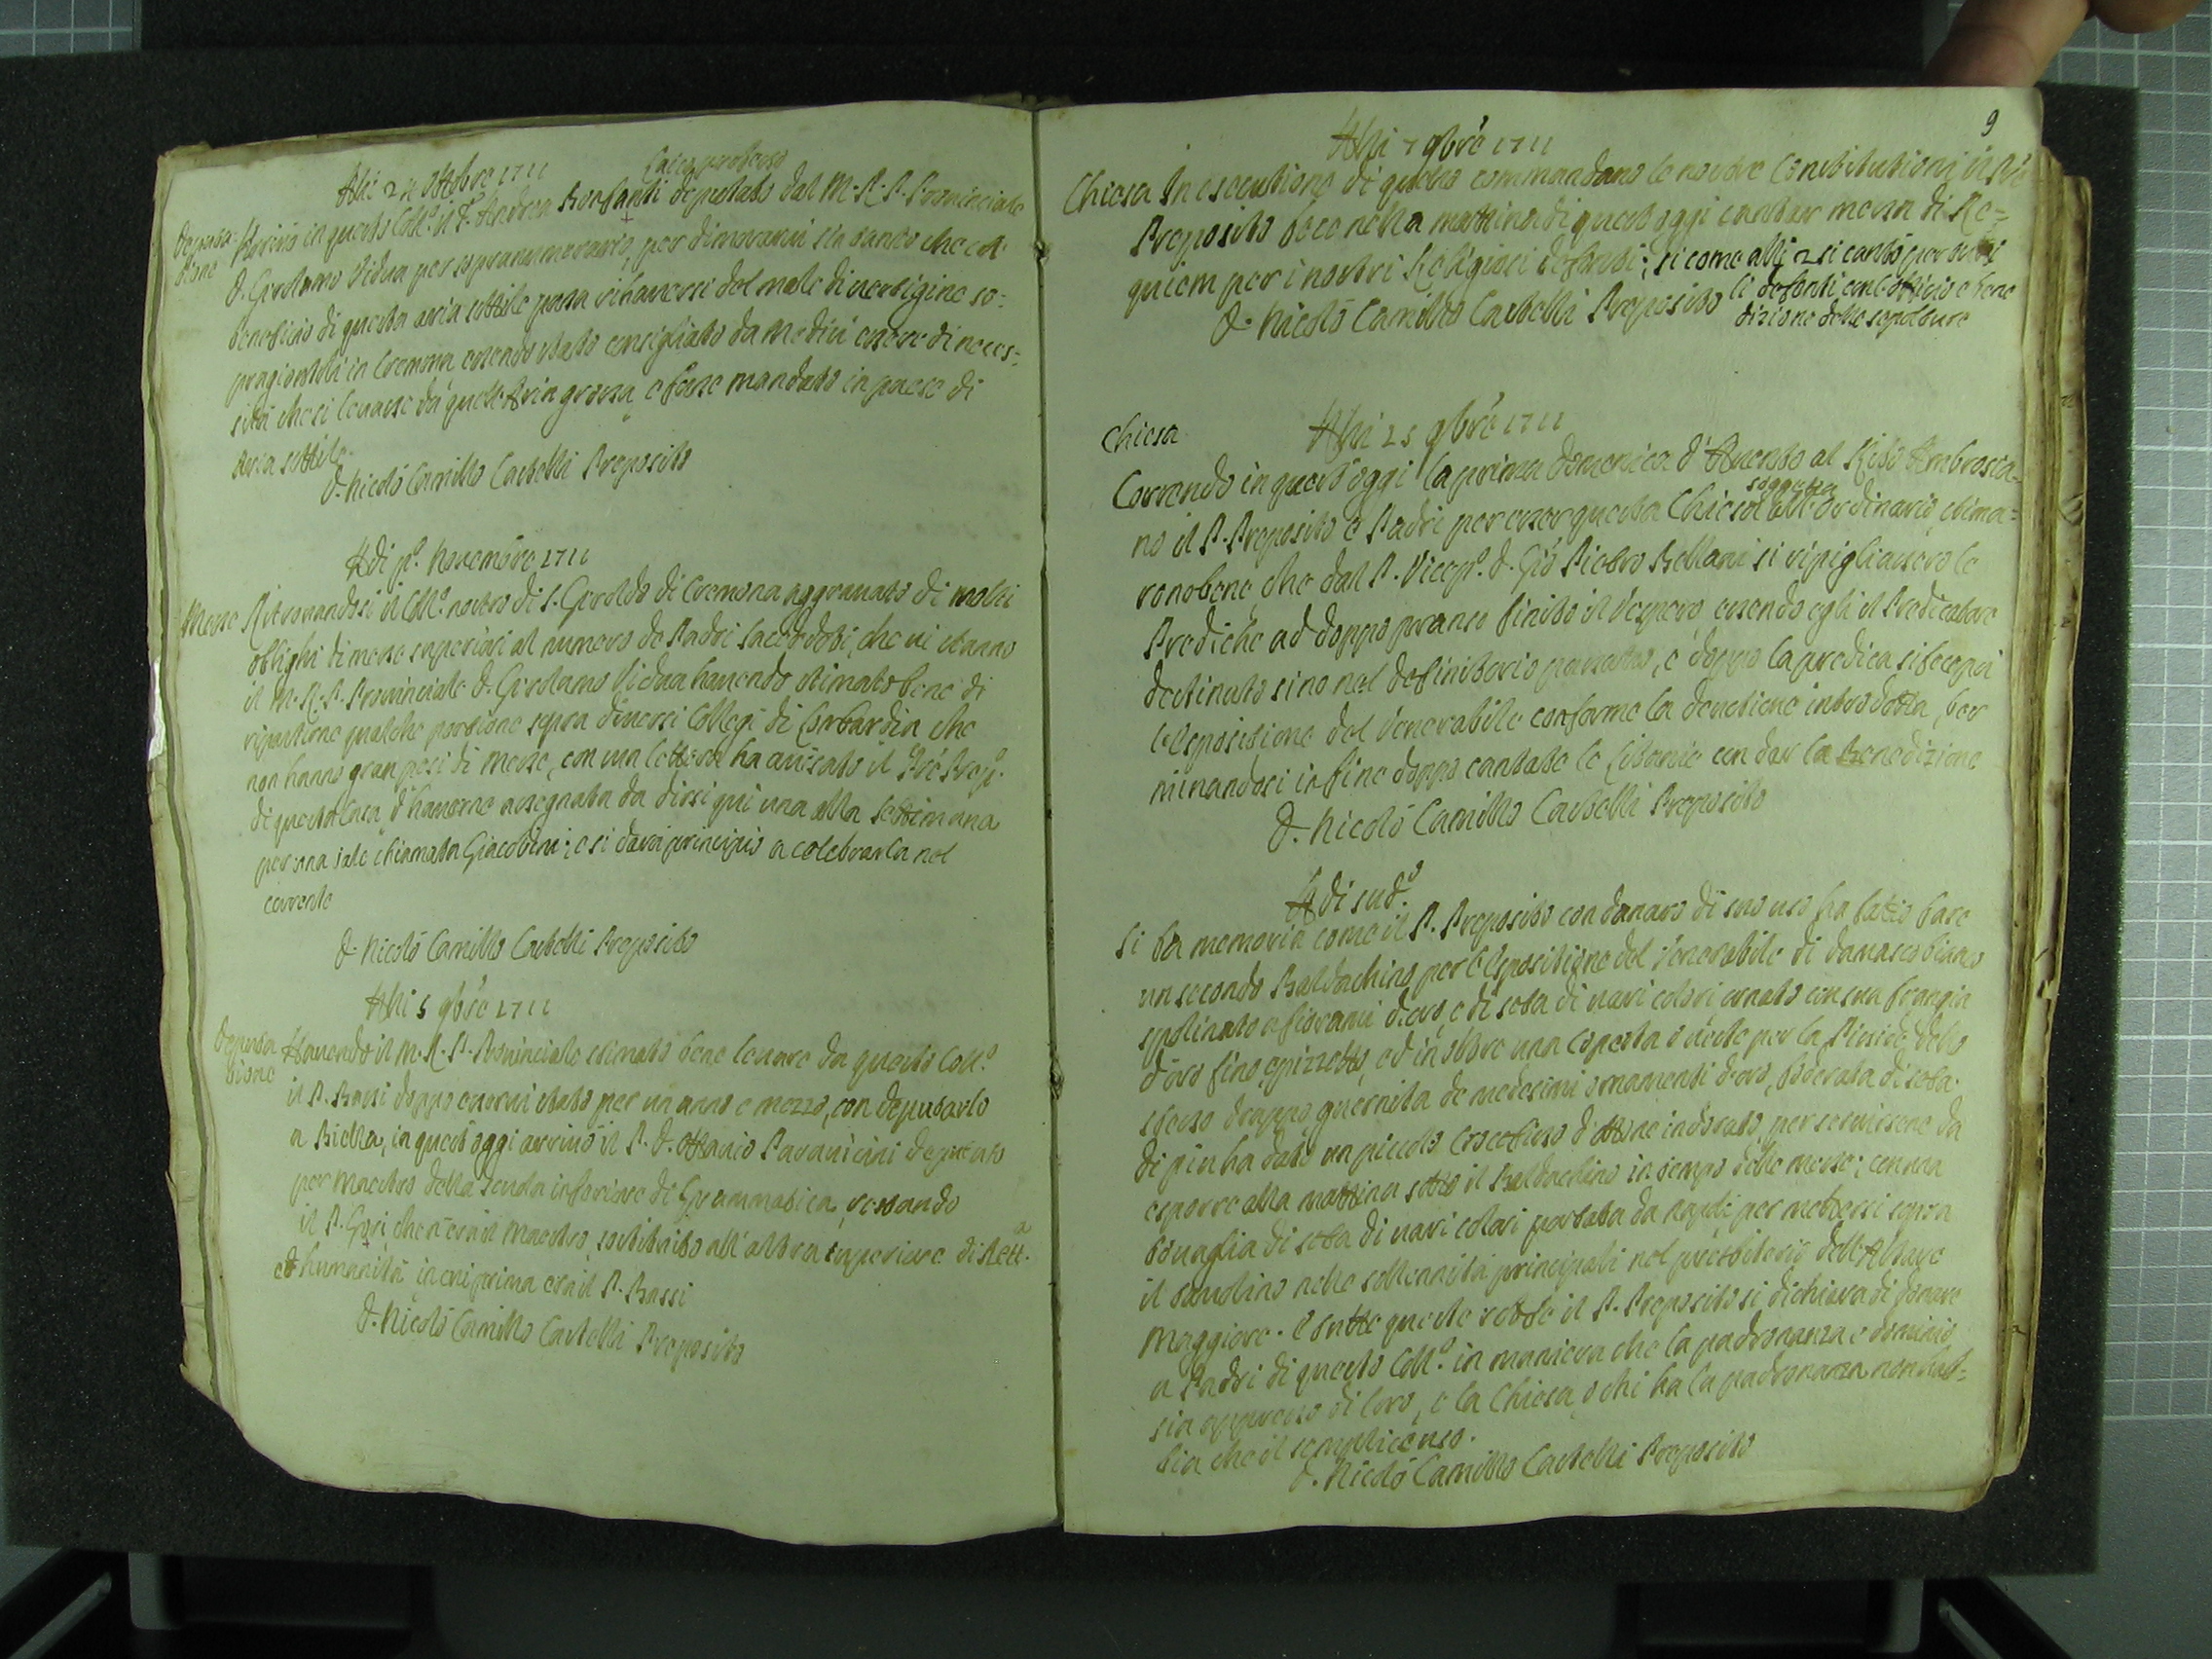 Alli 24 Ottobre 1711
Laico professo
Deputa-
tione
Arrivò in questo Coll.º il F. Andrea Bonfanti deputato dal M. R. P. Provinciale
D. Girolamo Vidua per sopranumerario, per dimorarvi sin tanto che col
beneficio di questa aria sottile possa rihaversi del male di vertigine so=
pragiontoli in Cremona essendo stato consigliato da Medici essere di neces=
sità che si levasse da quell'Aria grossa, e fosse mandato in paese di
Aria sottile.
D. Nicolò Camillo Castelli Preposito
Adi pº. Novembre 1711
Messe
Ritrovandosi il Coll.º nostro di S. Giroldo di Cremona aggravato di molti
oblighi di messe superiori al numero de Padri Sacerdoti, che vi stanno
il M. R. P. Provinciale D. Girolamo Vidua havendo stimato bene di
ripartirne qualche portione sopra diversi Collegi di Lombardia che
non hanno gran pesi di messe, con una lettera ha avisato il Prē Prep.º
di questa Casa d'haverne assegnata da dirsi qui una alla settimana
per una tale chiamata Giacobini; e si darà principio a celebrarla nel
corrente
D. Nicolò Camillo Castelli Preposito
Alli 5 9bre 1711
Deputa
tione
Havendo il M. R. P. Provinciale stimato bene levare da questo Coll.º
il P. Bassi doppo esservi stato per un anno e mezzo, con deputarlo
a Biella, in quest'oggi arrivò il P. D. Ottavio Pavanicini deputato
per Maestro della scuola inferiore di Grammatica, restando
il P. Gori che n'era il Maestro, sostituito all'altra superiore di Rett.a
et humanità in cui prima era il P. Bassi
D. Nicolò Camillo Castelli Preposito
9
Alli 7 9bre 1711
Chiesa
In esecutione di quello commandano le nostre Constitutioni il P.
Preposito fece nella mattina di quest'oggi cantar messa di Re=
quiem per i nostri Religiosi defonti; si come alli 2 si cantò per tutti
li defonti con l'offizio e bene
dizione delle sepolture
D. Nicolò Camillo Castelli Preposito
Chiesa
Alli 25 9bre 1711
Correndo in quest'oggi la prima Domenica d'Avento al Rito Ambrosia=
no il P. Preposito e Padri per esser questa Chiesa soggetta all'Ordinario stima=
rono bene, che dal P. Vicepº. D. Giō Pietro Bellani si ripigliassero le
Prediche ad doppo pranso finito il Vespero, essendo egli il Predicatore
destinato sino nel definitorio passato, e doppo la predica si fece poi
l'esposizione del Venerabile conforme la devotione introdotta, ter
minandosi in fine doppo cantate le Litanie con dar la Benedizione
D. Nicolò Camillo Castelli Preposito
Adi sud.º
Si fa memoria come il P. Preposito con danaro di suo uso ha fatto fare
un secondo Baldachino per l'Espositione del Venerabile di damasco bianco
spolinato a fiorami d'oro, e di seta di varii colori ornato con sua frangia
d'oro fino, e pizzetto, ed in oltre una coperta o veste per la Pisside dello
stesso drappo guernita de medesimi ornamenti d'oro, foderata di seta.
Di più ha dato un piccolo Crocefisso d'ottone indorato, per servirsene da
esporre alla mattina sotto il Baldachino in tempo delle messe; con una
tovaglia di seta di varii colori portata da Napoli per mettersi sopra
il tavolino nelle sollennità principali nel presbiterio dell'Altare
Maggiore. E tutte queste robbe il P. Preposito si dichiara di donare
a Padri di questo Coll.º in maniera che la padronanza e dominio
sia appresso di loro, e la Chiesa, o chi ha la padronanza non hab=
bia che il semplice uso.
D. Nicolò Camillo Castelli Preposito